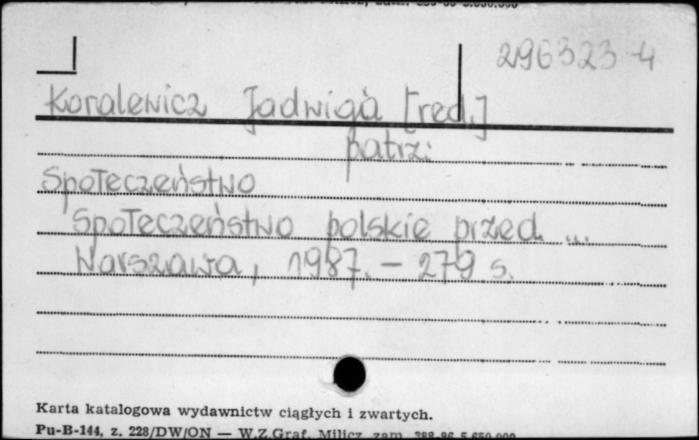 296323-4
Koralewicz Jadwiga [red.]
patrz:
Społeczeństwo
Społeczeństwo polskie przed ...
Warszawa, 1987. - 279 s.
Karta katalogowa wydawnictw ciągłych i zwartych.
Pu-B-144, z. 228/DW/ON — W.Z.Graf. Milicz, zam.